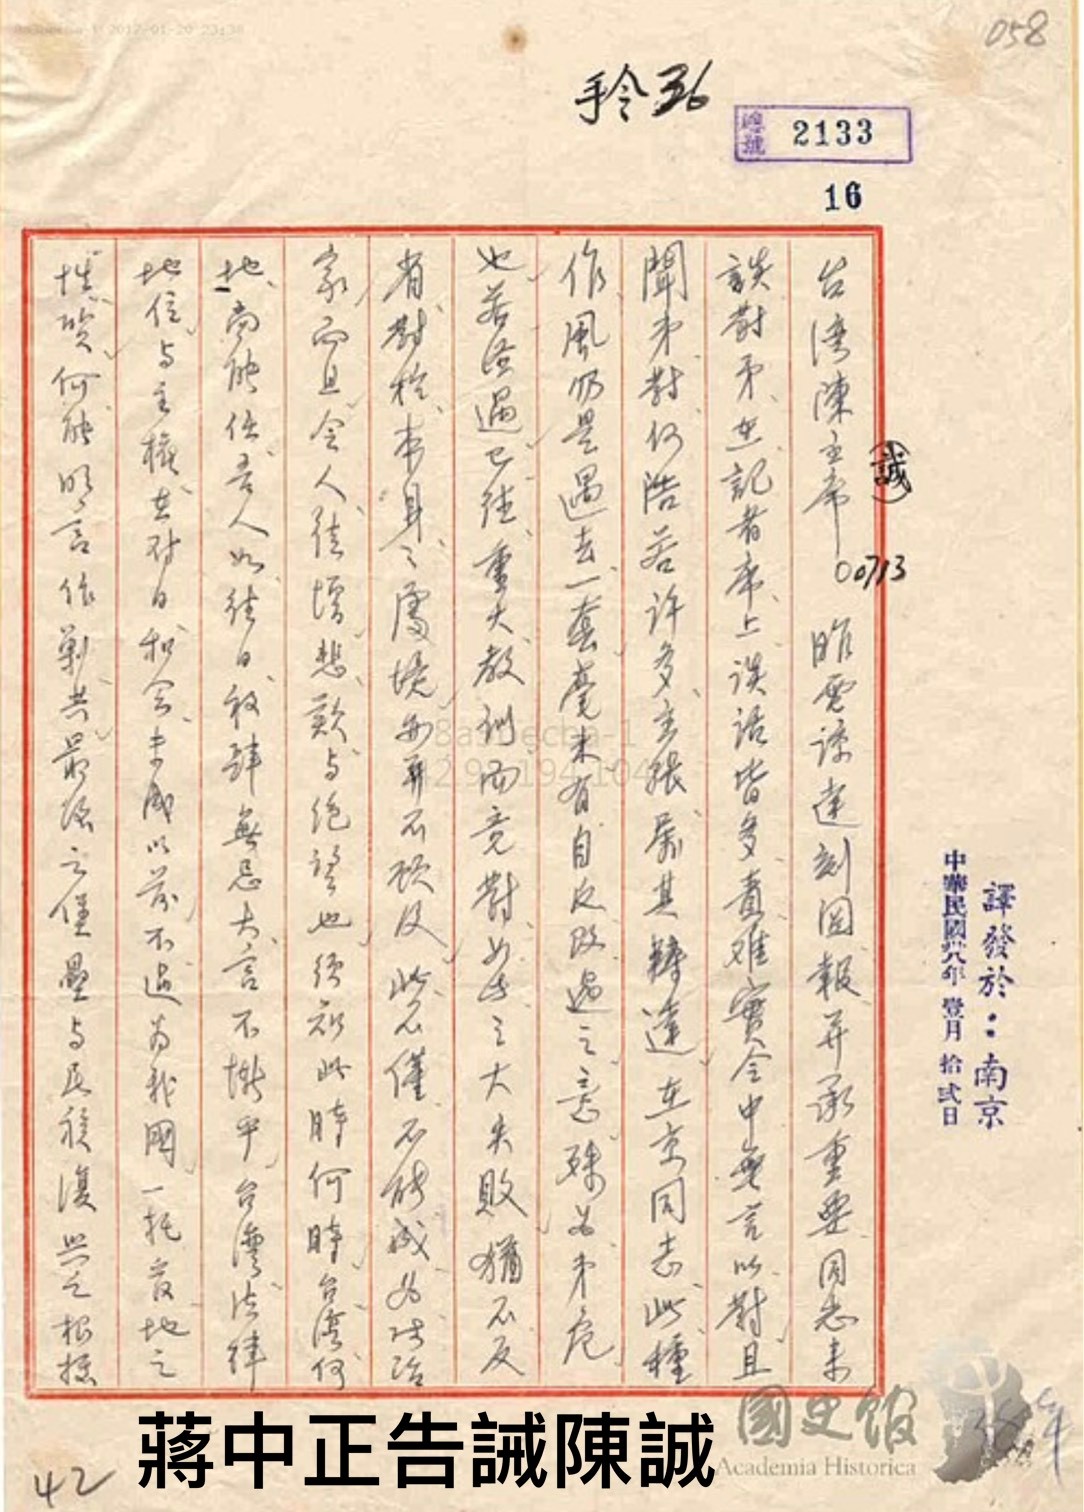 058
手令336
總號 2133
16
台灣陳主席(誠) 00713 昨電諒達刻因報并承重要同志來
談對弟在記者席上談話皆多責難實令中無言以對且
聞弟對何浩若許多主張屬其轉達在京同志此種
作風仍是過去一套毫未有自反改過之意殊為弟危
也若經過已往重大教訓而竟對如此之大失敗猶不反
省對於本身之處境亦再不顧及此不僅不能成為政治
家而且令人徒增悲歎與絕望也須知此時何時台灣何
地尚能任吾人如往日放肆無忌大言不慚乎台灣法律
地位與主權在對日和會未成以前不過為我國一托管地之
性質何能明言作剿共最後之堡壘與民族復興之根據
譯發於：南京
中華民國卅八年 壹月 拾弍日
蔣中正告誡陳誠
國史館
Academia Historica
42